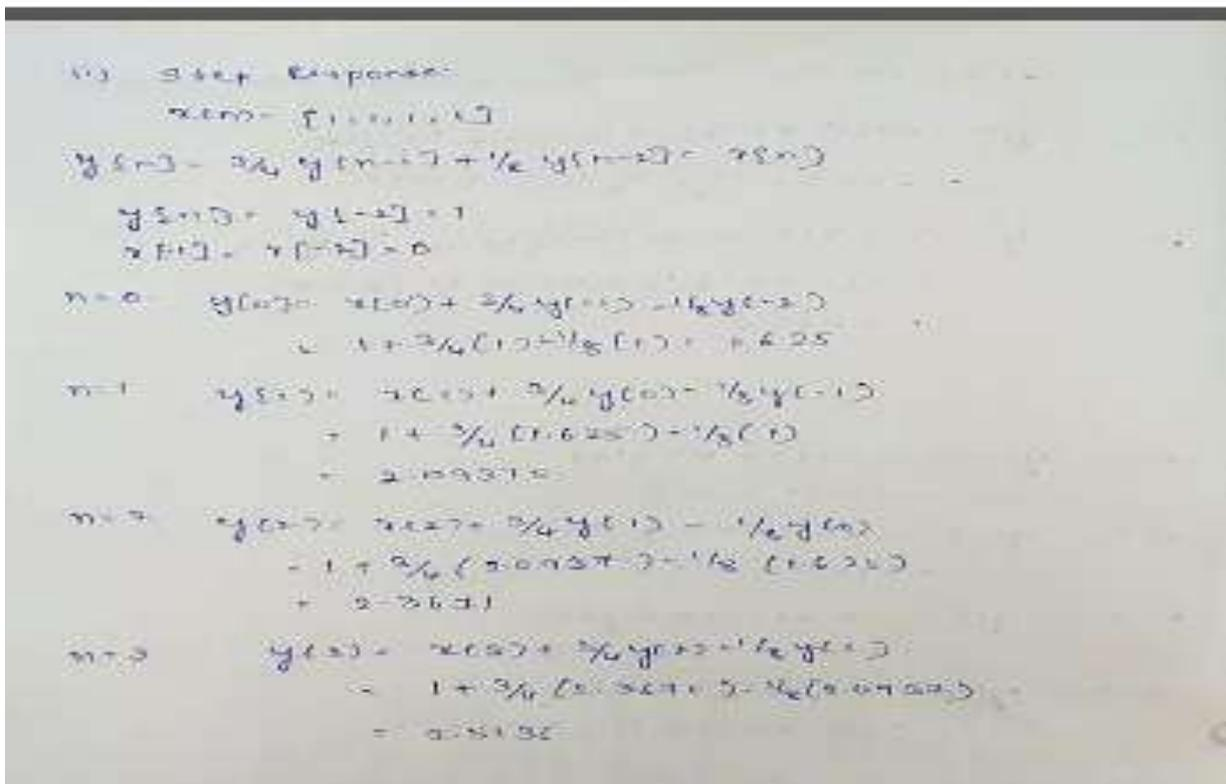 Step Response
x[n] = [1, 1, 1, 1]
y[n] - 3/4 y[n-1] + 1/8 y[n-2] = x[n]
y[-1] = y[-2] = 1
x[-1] = x[-2] = 0
n=0 y(0) = x(0) + 3/4 y(-1) - 1/8 y(-2)
= 1 + 3/4 (1) - 1/8 (1) = 1.625
n=1 y(1) = x(1) + 3/4 y(0) - 1/8 y(-1)
= 1 + 3/4 (1.625) - 1/8 (1)
= 2.09375
n=2 y(2) = x(2) + 3/4 y(1) - 1/8 y(0)
= 1 + 3/4 (2.0937) - 1/8 (1.625)
= 2.3671
n=3 y(3) = x(3) + 3/4 y(2) - 1/8 y(1)
= 1 + 3/4 (2.3671) - 1/8 (2.0937)